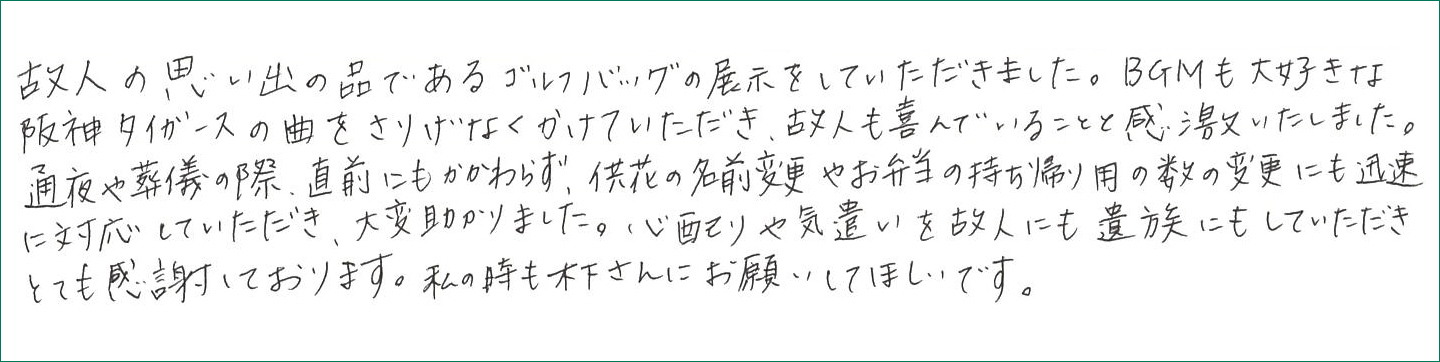 故人の思い出の品であるゴルフバッグの展示をしていただきました。BGMも大好きな
阪神タイガースの曲をさりげなくかけていただき、故人も喜んでいることと感激いたしました。
通夜や葬儀の際、直前にもかかわらず、供花の名前変更やお弁当の持ち帰り用の数の変更にも迅速
に対応していただき、大変助かりました。心配りや気遣いを故人にも遺族にもしていただき
とても感謝しております。私の時も木下さんにお願いしてほしいです。